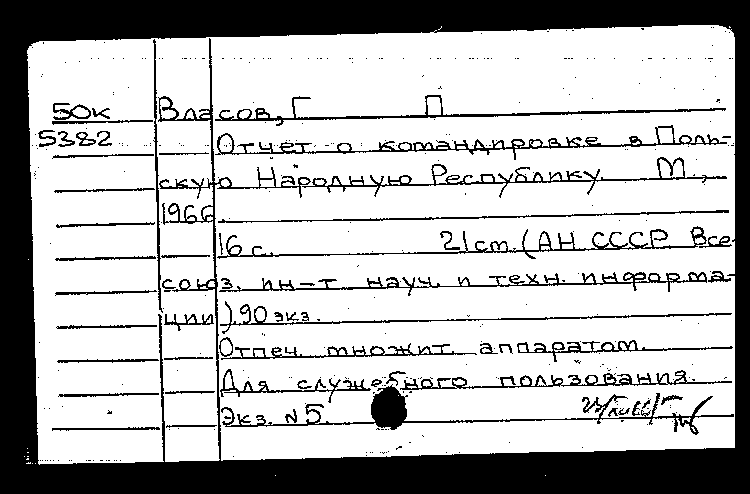 50к Власов, Г П
5382 Отчет о командировке в Поль-
скую Народную Республику. М.,
1966.
16 с. 21 ст. (АН СССР Все
союз. ин-т науч. и техн. информа-
ции). 90 экз.
Отпеч. множит. аппаратом.
Для служебного пользования.
Экз. № 5.